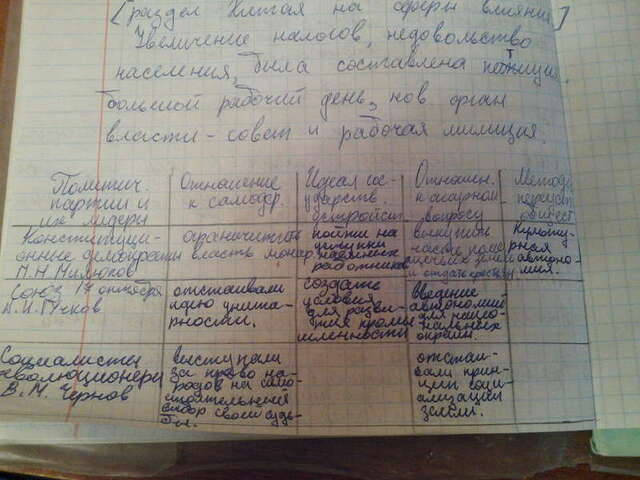 [раздел Китая на сферы влияния]
Увеличение налогов, недовольство
населения, была составлена петиция.
большой рабочий день, нов орган
власти - совет и рабочая милиция.
Политич.
партии и
их лидеры
Отношение
к самодер.
Идеал го-
сударств.
устройст.
Отношен.
к аграрной
вопросу
Методы
переуст
общест
Конституци-
онные демократы
П.Н Милюков
ограничить
власть монар
пойти на
уступки
наемных
работников
выкупить
часть поме
щичьих земель
и отдать крестьян
Культу-
рная
автоно-
мия.
Союз 17 октября
А.И.Гучков
отстаивали
идею унита-
рности.
создать
условия
для разви-
тия промы
шленности
введение
автономии
для нацио-
нальных
окраин
Социалисты
революционеры
В.М. Чернов
выступали
за право на-
родов на само
стоятельный
выбор своей судь-
бы.
отстаи-
вали прин-
цип соци-
ализации
земли.